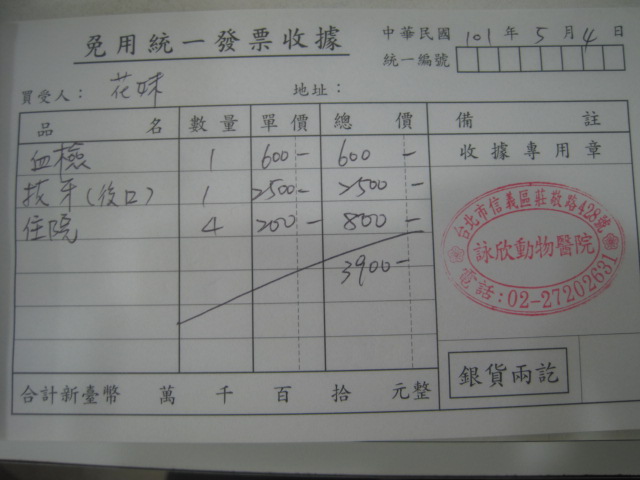 免用統一發票收據
中華民國 101 年 5 月 4 日
統一編號
買受人： 花妹 地址：
品名 數量 單價 總價 備註
血檢 1 600- 600-
拔牙(後口) 1 2500- 2500-
住院 4 200- 800-
3900-
收據專用章
台北市信義區莊敬路428號
詠欣動物醫院
電話:02-27202631
銀貨兩訖
合計新臺幣 萬 千 百 拾 元整